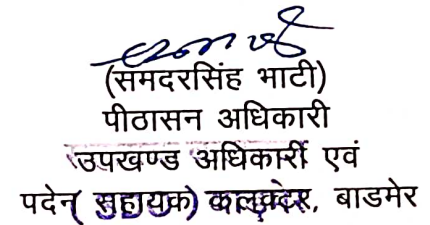 (समदरसिंह भाटी)
पीठासन अधिकारी
उपखण्ड अधिकारी एवं
पदेन( सहायक) कलक्टर, बाडमेर